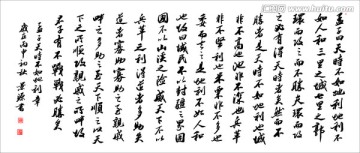 孟子曰天時不如地利地利不
如人和三里之城七里之郭
環而攻之而不勝夫環而攻
之必有得天時者矣然而不
勝者是天時不如地利也城
非不高也池非不深也兵革
非不堅利也米粟非不多也
委而去之是地利不如人和
也故曰域民不以封疆之界固
國不以山溪之險威天下不以
兵革之利得道者多助失
道者寡助寡助之至親戚
畔之多助之至天下順之以天
下之所順攻親戚之所畔故
君子有不戰戰必勝矣
孟子天時不如地利章
丙申初秋 書